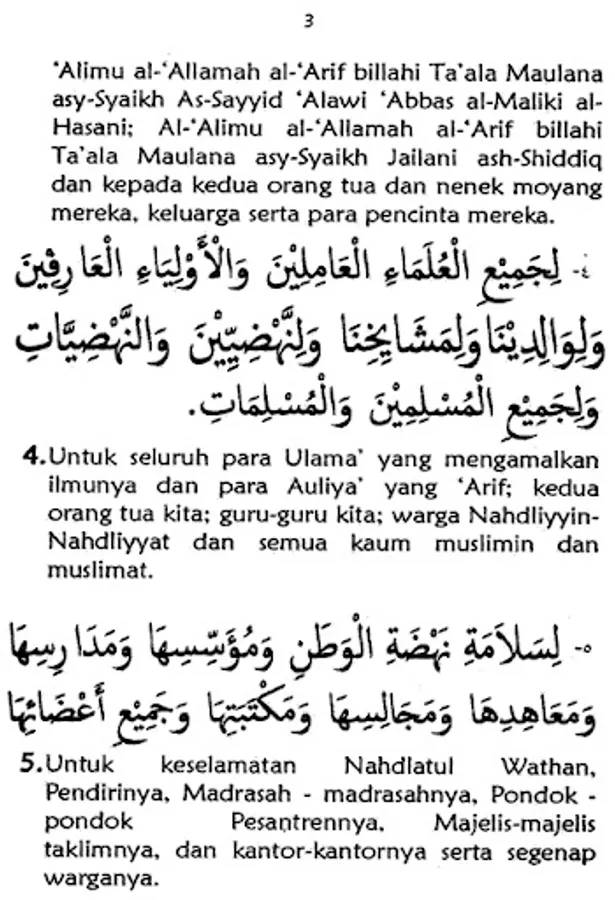 3
'Alimu al-'Allamah al-'Arif billahi Ta'ala Maulana
asy-Syaikh As-Sayyid 'Alawi 'Abbas al-Maliki al-
Hasani; Al-'Alimu al-'Allamah al-'Arif billahi
Ta'ala Maulana asy-Syaikh Jailani ash-Shiddiq
dan kepada kedua orang tua dan nenek moyang
mereka, keluarga serta para pencinta mereka.
٤- لِجَمِيْعِ الْعُلَمَاءِ الْعَامِلِيْنَ وَالْأَوْلِيَاءِ الْعَارِفِيْنَ
وَلِوَالِدِيْنَا وَلِمَشَايِخِنَا وَلِنَّهْضِيِّيْنَ وَالنَّهْضِيَّاتِ
وَلِجَمِيْعِ الْمُسْلِمِيْنَ وَالْمُسْلِمَاتِ.
4.Untuk seluruh para Ulama' yang mengamalkan
ilmunya dan para Auliya' yang 'Arif; kedua
orang tua kita; guru-guru kita; warga Nahdliyyin-
Nahdliyyat dan semua kaum muslimin dan
muslimat.
٥- لِسَلَامَةِ نَهْضَةِ الْوَطَنِ وَمُؤَسِّسِهَا وَمَدَارِسِهَا
وَمَعَاهِدِهَا وَمَجَالِسِهَا وَمَكْتَبَتِهَا وَجَمِيْعِ أَعْضَائِهَا
5.Untuk keselamatan Nahdlatul Wathan,
Pendirinya, Madrasah - madrasahnya, Pondok -
pondok Pesantrennya, Majelis-majelis
taklimnya, dan kantor-kantornya serta segenap
warganya.